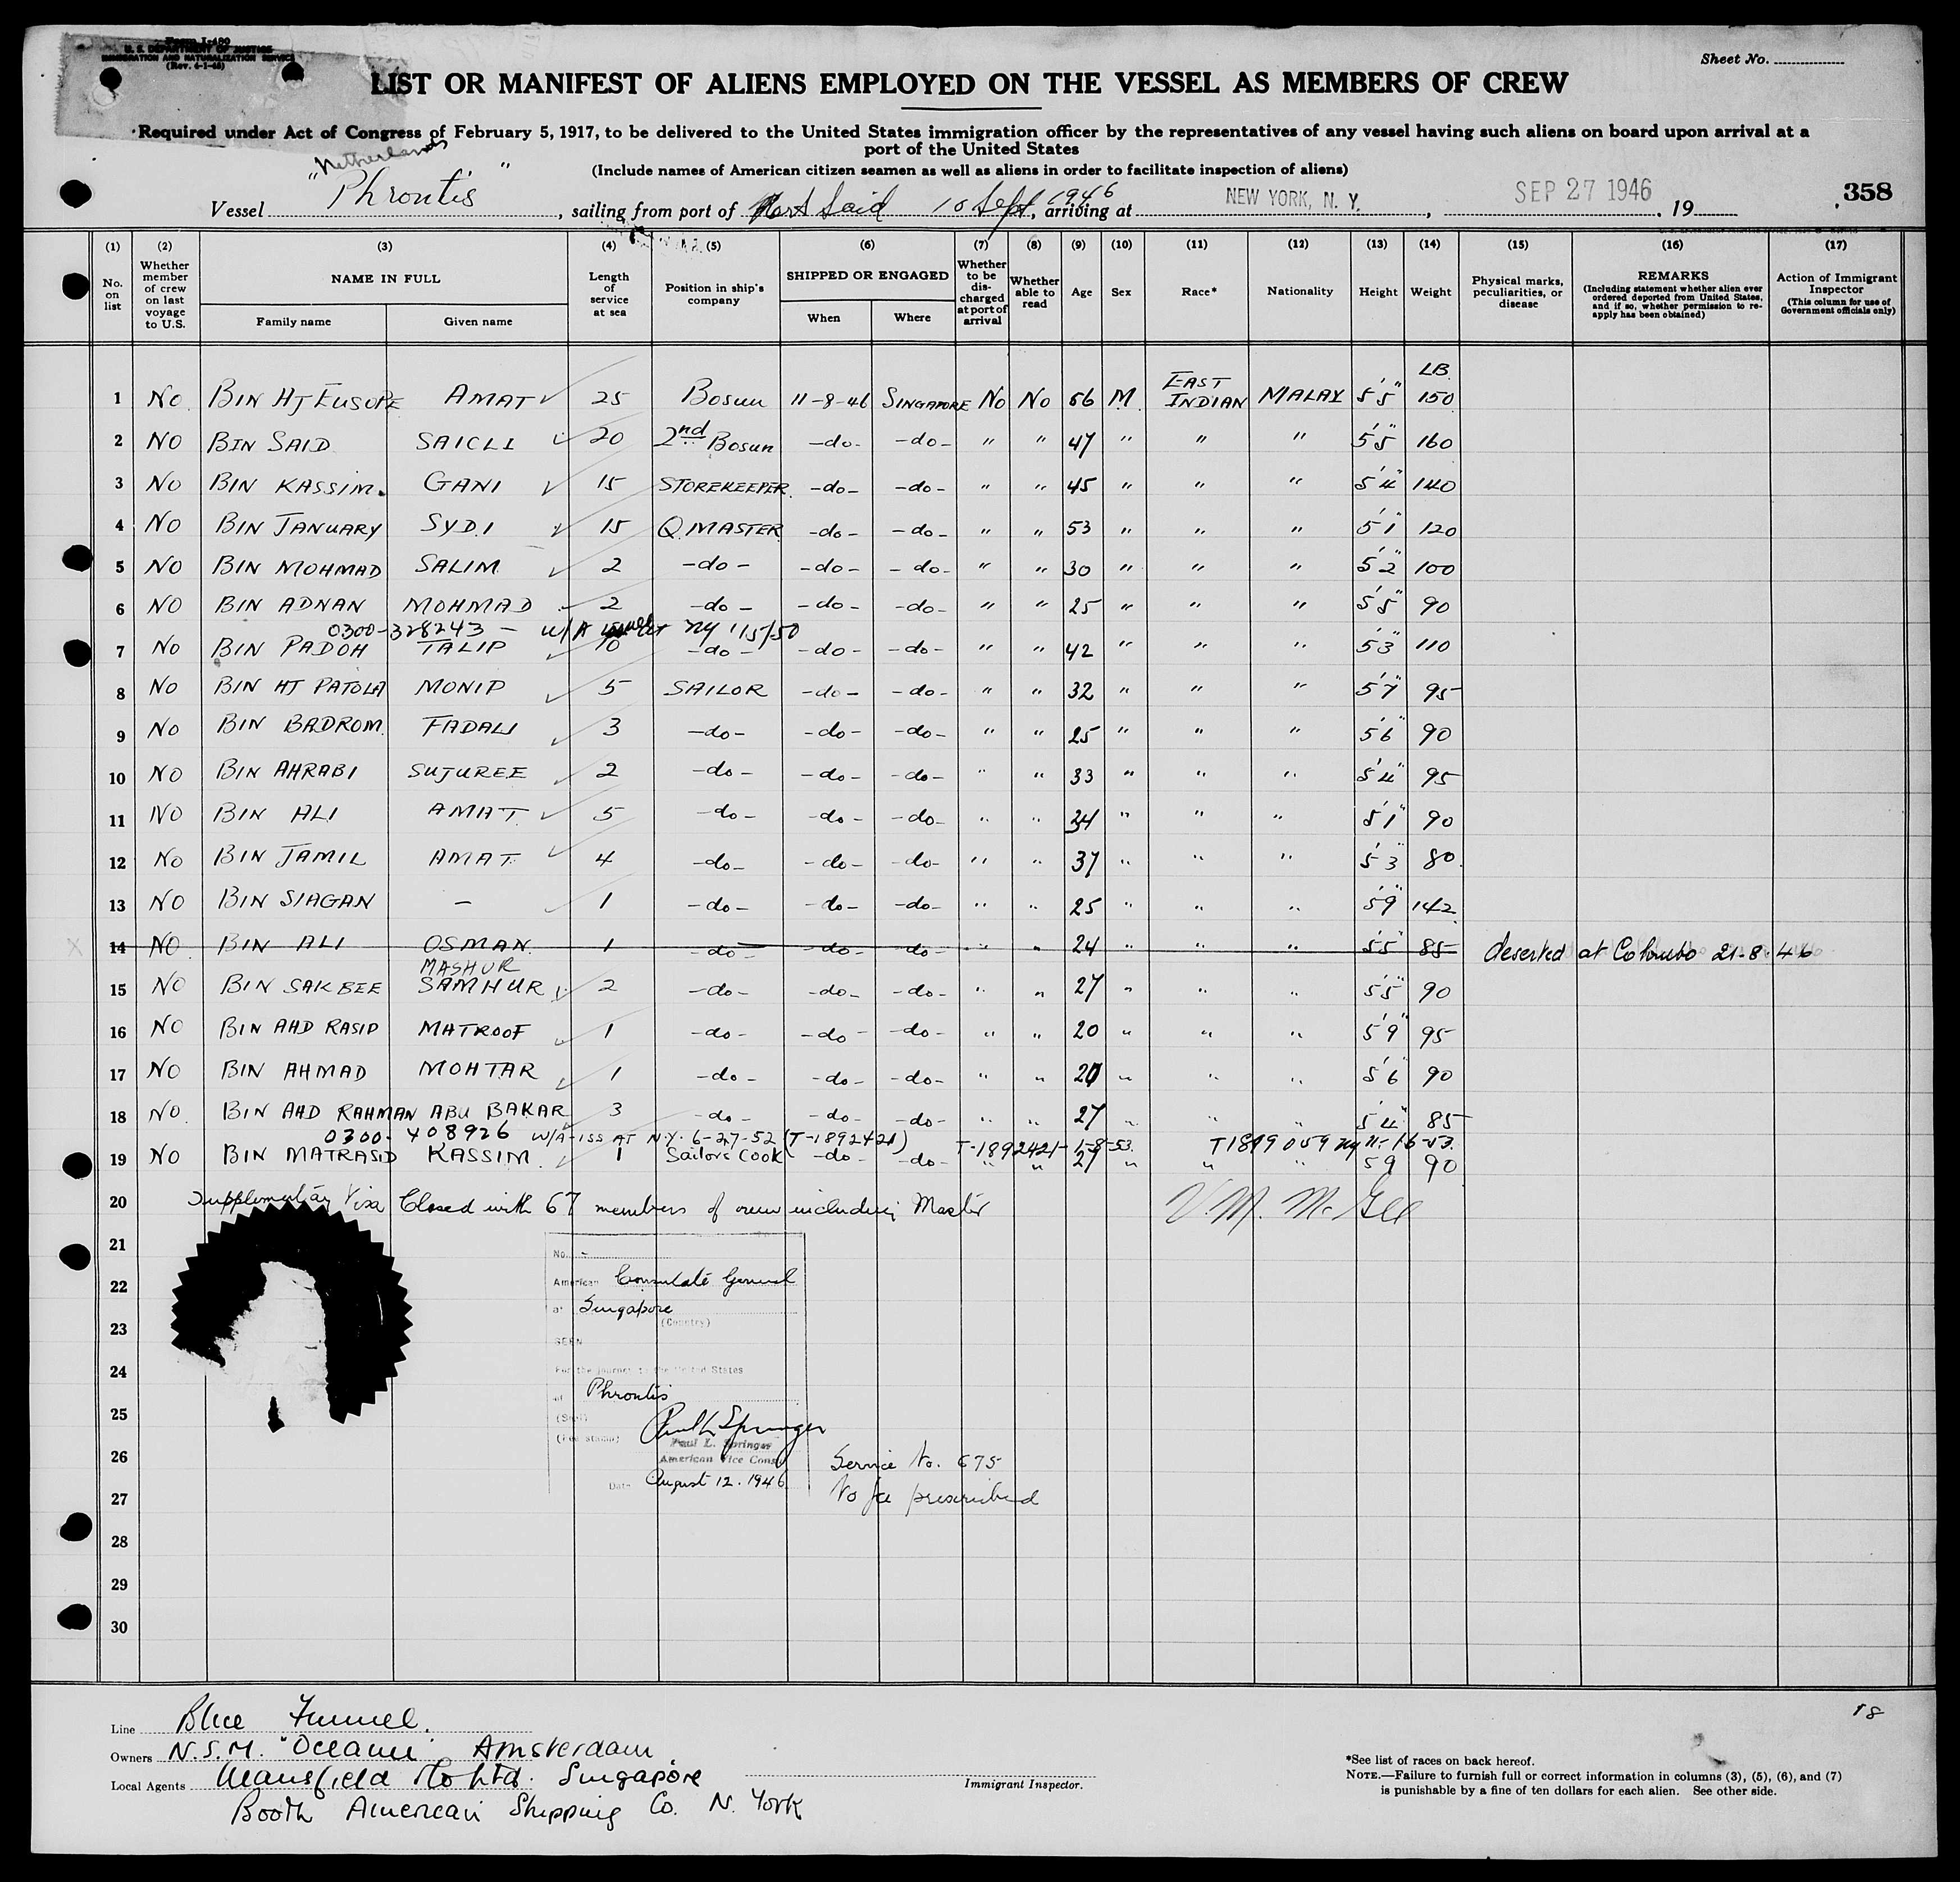 Form I-480
U. S. DEPARTMENT OF JUSTICE
IMMIGRATION AND NATURALIZATION SERVICE
Sheet No.
LIST OR MANIFEST OF ALIENS EMPLOYED ON THE VESSEL AS MEMBERS OF CREW
Required under Act of Congress of February 5, 1917, to be delivered to the United States immigration officer by the representatives of any vessel having such aliens on board upon arrival at a
port of the United States
(Include names of American citizen seamen as well as aliens in order to facilitate inspection of aliens)
"Netherlands"
Vessel Phrontis, sailing from port of Port Said 10 Sept, 1946 arriving at NEW YORK, N. Y., SEP 27 1946, 19 358
(1) (2) (3) (4) (5) (6) (7) (8) (9) (10) (11) (12) (13) (14) (15) (16) (17)
No. on list Whether member of crew on last voyage to U.S. NAME IN FULL Family name Given name Length of service at sea Position in ship's company SHIPPED OR ENGAGED When Where Whether to be discharged at port of arrival Whether able to read Age Sex Race* Nationality Height Weight Physical marks, peculiarities, or disease REMARKS (Including statement whether alien ever ordered deported from United States, and if so, whether permission to re-apply has been obtained) Action of Immigrant Inspector (This column for use of Government officials only)
LB.
1 NO BIN HJ EUSOPE AMAT 25 Bosun 11-8-46 SINGAPORE No No 56 M. EAST INDIAN MALAY 5'5" 150
2 NO BIN SAID SAICLI 20 2nd Bosun -do- -do- " " 47 " " " 5'5" 160
3 NO BIN KASSIM. GANI 15 STOREKEEPER. -do- -do- " " 45 " " " 5'4" 140
4 NO BIN JANUARY SYDI 15 Q. MASTER -do- -do- " " 53 " " " 5'1" 120
5 NO BIN MOHMAD SALIM. 2 -do- -do- -do- " " 30 " " " 5'2" 100
6 NO BIN ADNAN MOHMAD 2 -do- -do- -do- " " 25 " " " 5'5" 90
0300-328243 - W/A NY 1/5/50
7 NO BIN PADOH TALIP 10 -do- -do- -do- " " 42 " " " 5'3" 110
8 NO BIN HJ PATOLA MONIP 5 SAILOR -do- -do- " " 32 " " " 5'7" 95
9 NO BIN BADROM. FADALI 3 -do- -do- -do- " " 25 " " " 5'6" 90
10 NO BIN AHRABI SUJUREE 2 -do- -do- -do- " " 33 " " " 5'4" 95
11 NO BIN ALI AMAT. 5 -do- -do- -do- " " 34 " " " 5'1" 90
12 NO BIN JAMIL AMAT. 4 -do- -do- -do- " " 37 " " " 5'3" 80.
13 NO BIN SIAGAN - 1 -do- -do- -do- " " 25 " " " 5'9" 142
14 NO BIN ALI OSMAN. 1 -do- -do- -do- " " 24 " " " 5'5" 85 deserted at Colombo 21-8-46
MASHUR
15 NO BIN SAKBEE SAMHUR 2 -do- -do- -do- " " 27 " " " 5'5" 90
16 NO BIN AHD RASID MATROOF 1 -do- -do- -do- " " 20 " " " 5'9" 95
17 NO BIN AHMAD MOHTAR 1 -do- -do- -do- " " 20 " " " 5'6" 90
18 NO. BIN AHD RAHMAN ABU BAKAR 3 -do- -do- -do- " " 27 " " " 5'4" 85
0300-408926 W/A-ISS AT N.Y. 6-27-52 (T-1892421) T-1892421-1-8-53. T1819059 NY 11-16-53.
19 NO BIN MATRASID KASSIM. 1 Sailors Cook -do- -do- " " 27 " " " 5 9 90
20 Supplementary Visa Closed with 67 members of crew including Master V. M. McGee
21
22
23
24
25
26
27
28
29
30
No. -
American Consulate General
at Singapore
(Country)
SEEN
For the journey to the United States
of Phrontis
(Seal)
(Fee stamp)
Paul L. Springer
Paul L. Springer
American Vice Consul
Date August 12. 1946
Service No. 675
No fee prescribed
18
Line Blue Funnel.
Owners N.S.M. "Oceaan" Amsterdam
Local Agents Mansfield & Co Ltd. Singapore
Booth American Shipping Co. N. York
Immigrant Inspector.
*See list of races on back hereof.
NOTE.—Failure to furnish full or correct information in columns (3), (5), (6), and (7)
is punishable by a fine of ten dollars for each alien. See other side.